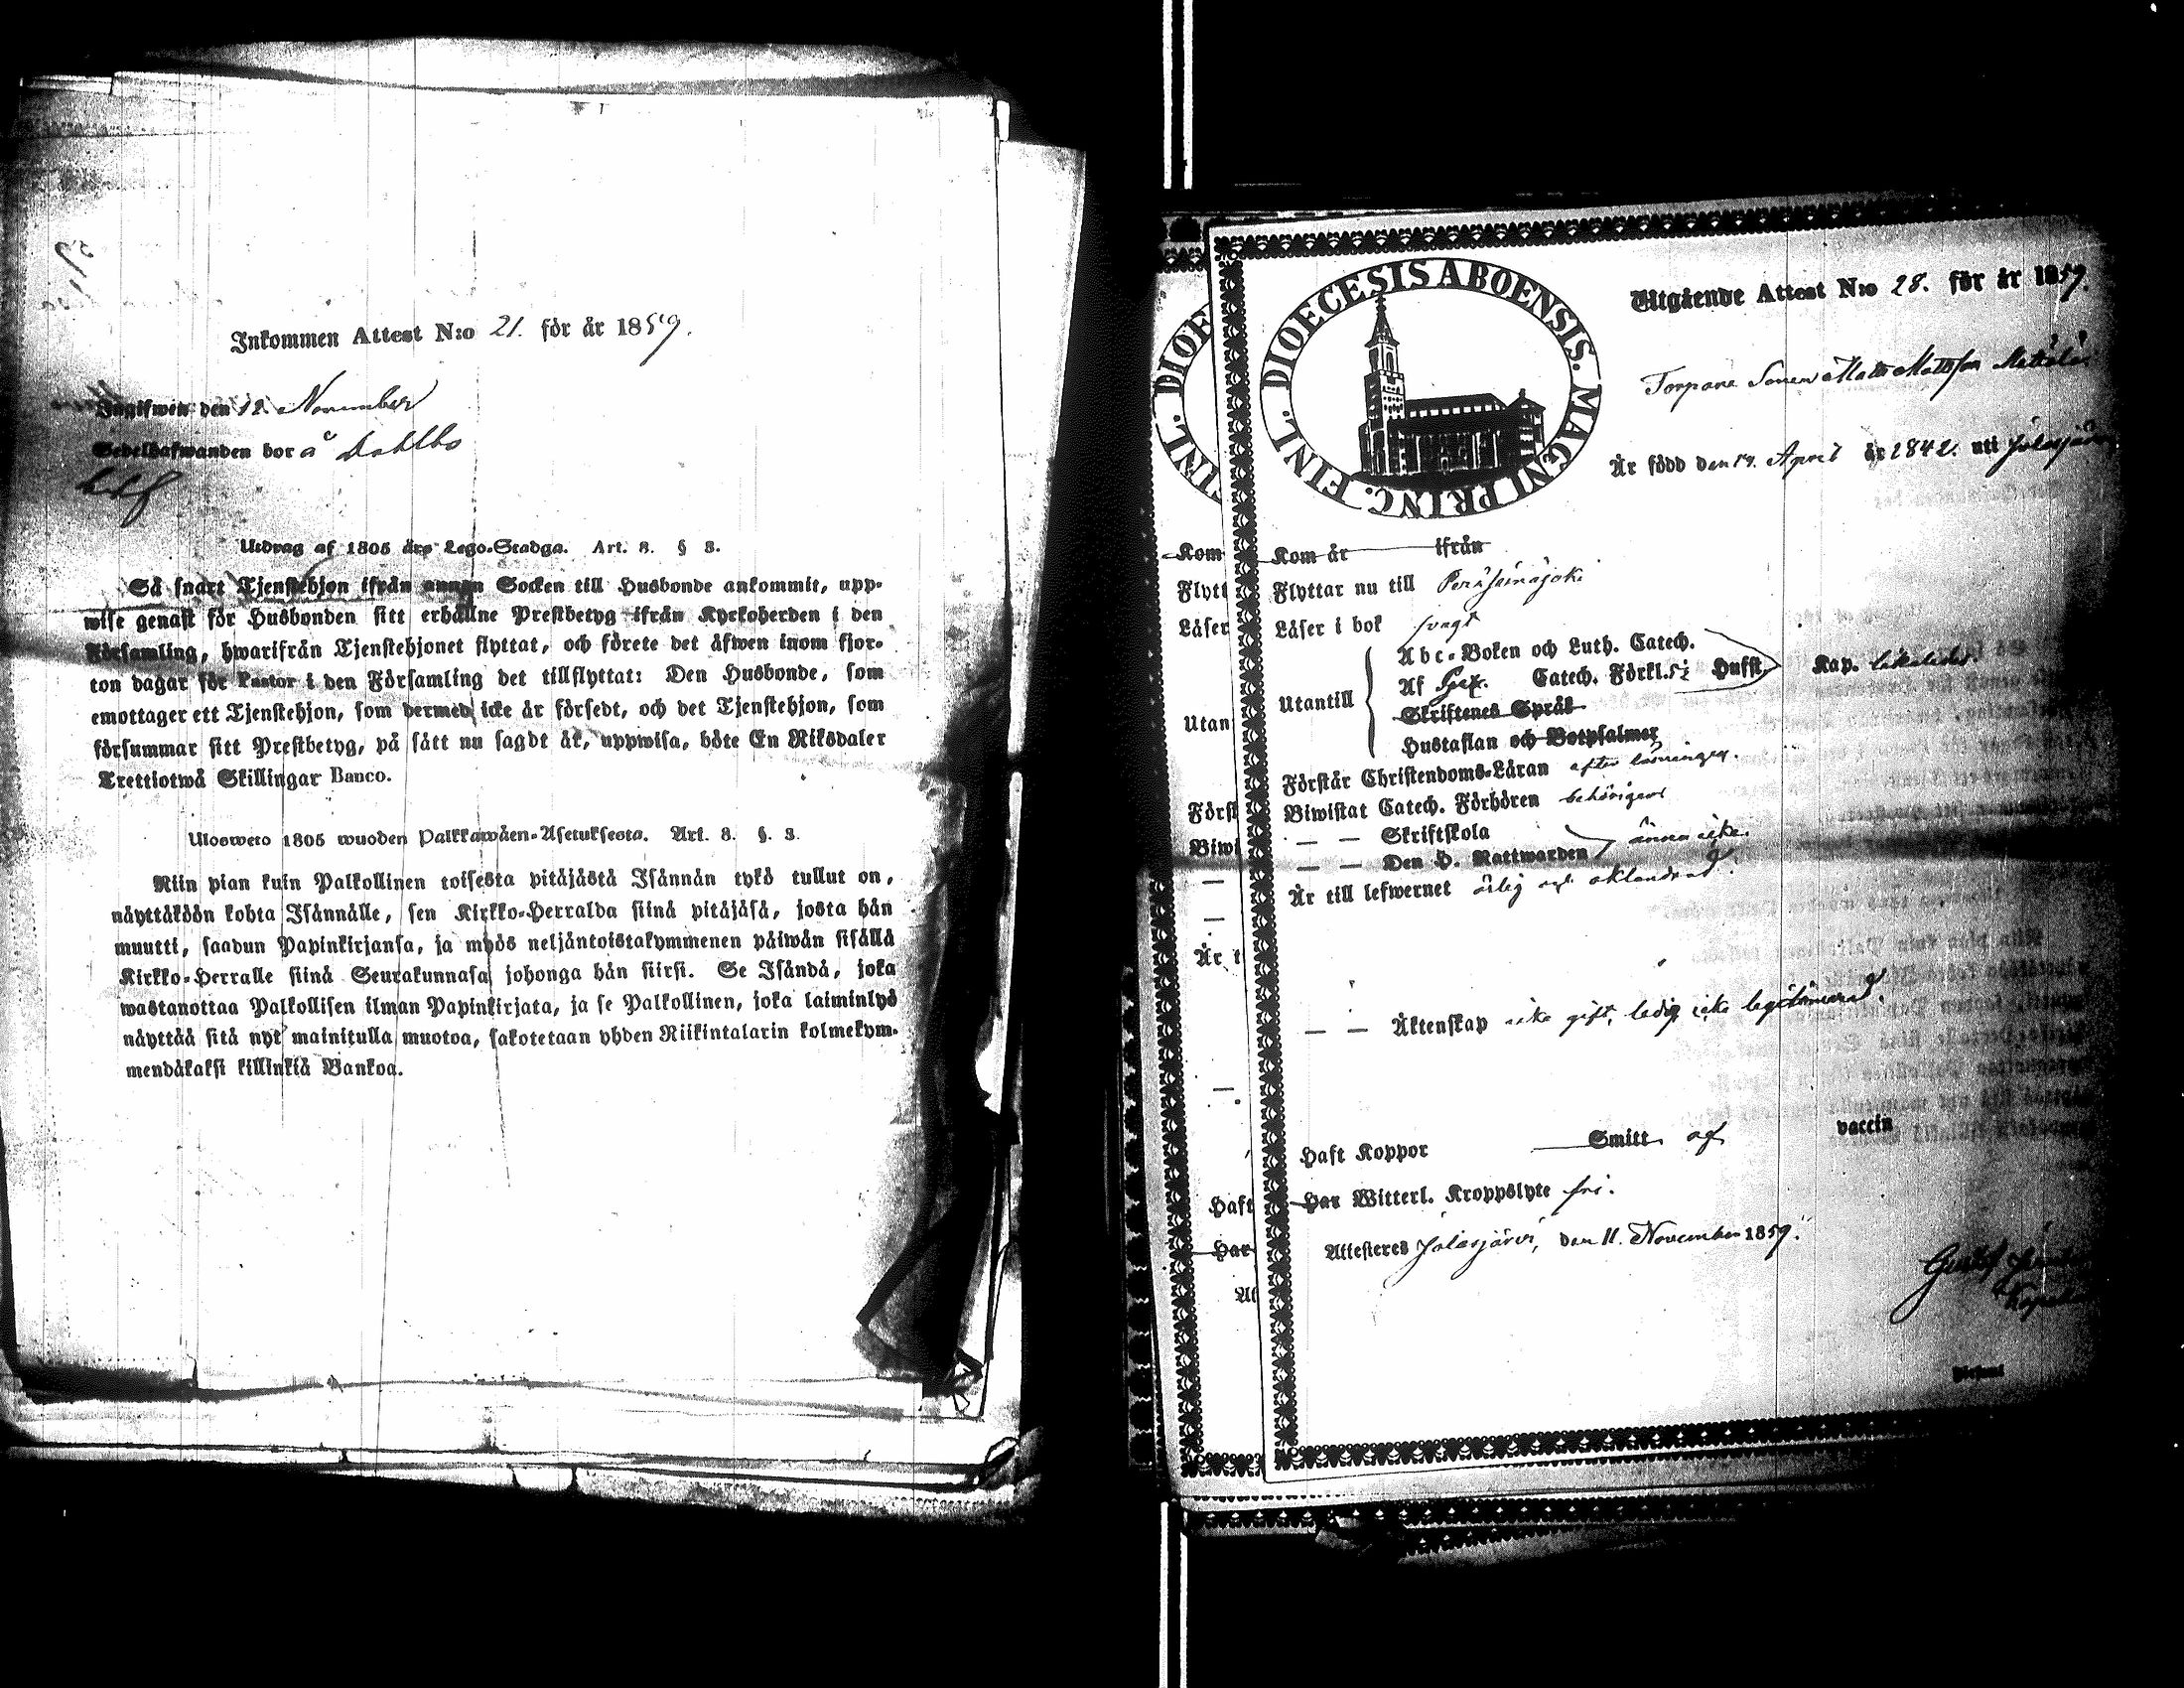 Inkommen Attest N:o 21. för år 1859.
Ingifwen den 12 November
Sedelhafwanden bor å Dahlbo
Utdrag af 1805 års Lego-Stadga. Art. 8. § 3.
Så snart Tjenstehjon ifrån annan Socken till Husbonde ankommit, upp-
wise genast för Husbonden sitt erhållne Prestbetyg ifrån Kyrkoherden i den
Församling, hwarifrån Tjenstehjonet flyttat, och förete det äfwen inom fjor-
ton dagar för Pastor i den Församling det tillflyttat: Den Husbonde, som
emottager ett Tjenstehjon, som dermed icke är försedt, och det Tjenstehjon, som
försummar sitt Prestbetyg, på sätt nu sagdt är, uppwisa, böte En Riksdaler
Trettiotwå Skillingar Banco.
Ulosweto 1805 wuoden Palkkawäen-Asetuksesta. Art. 8. §. 3.
Niin pian kuin Palkollinen toisesta pitäjästä Isännän tykö tullut on,
näyttäköön kohta Isännälle, sen Kirkko-Herralda siinä pitäjäsä, josta hän
muutti, saadun Papinkirjansa, ja myös neljäntoistakymmenen päiwän sisällä
Kirkko-Herralle siinä Seurakunnasa johonga hän siirsi. Se Isändä, joka
wastanottaa Palkollisen ilman Papinkirjata, ja se Palkollinen, joka laiminlyö
näyttää sitä nyt mainitulla muotoa, sakotetaan yhden Riikintalarin kolmekym-
mendäkaksi killinkiä Bankoa.
DIOECESIS ABOENSIS. MAGNI PRINC. FINL.
Utgående Attest N:o 28. för år 1859.
Torpare Sonen Matts Mattsson
Är född den 14. April år 1842. uti Jalasjärvi
Kom år ifrån
Flyttar nu till Peräseinäjoki
Läser i bok svagt
Utantill
Abc-Boken och Luth. Catech.
Af Catech. Förkl. 5: Hufst. Kap.
Skriftenes Språk
Hustaflan och Botpsalmer
Förstår Christendoms-Läran efter läsningen.
Biwistat Catech. Förhören behörigen
— — Skriftskola
— — Den H. Nattwarden ännu icke.
Är till lefwernet ärlig och oklandrad.
— — Äktenskap icke gift, ledig, icke legitimerad.
Haft Koppor Smitt af vaccin
Har Witterl. Kroppslyte fri.
Attesteras Jalasjärvi, den 11. November 1859.
Gustaf